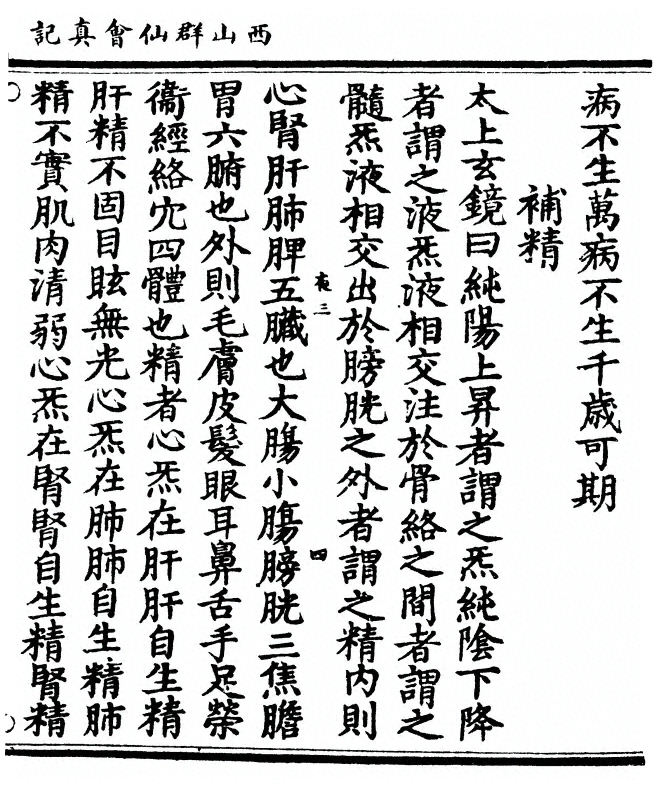 西山群仙會真記
病不生萬病不生千歲可期
補精
太上玄鏡曰純陽上昇者謂之炁純陰下降
者謂之液炁液相交注於骨絡之間者謂之
髓炁液相交出於膀胱之外者謂之精內則
夜三
四
心腎肝肺脾五臟也大腸小腸膀胱三焦膽
胃六腑也外則毛膚皮髮眼耳鼻舌手足榮
衞經絡穴四體也精者心炁在肝肝自生精
肝精不固目眩無光心炁在肺肺自生精肺
精不實肌肉清弱心炁在腎腎自生精腎精